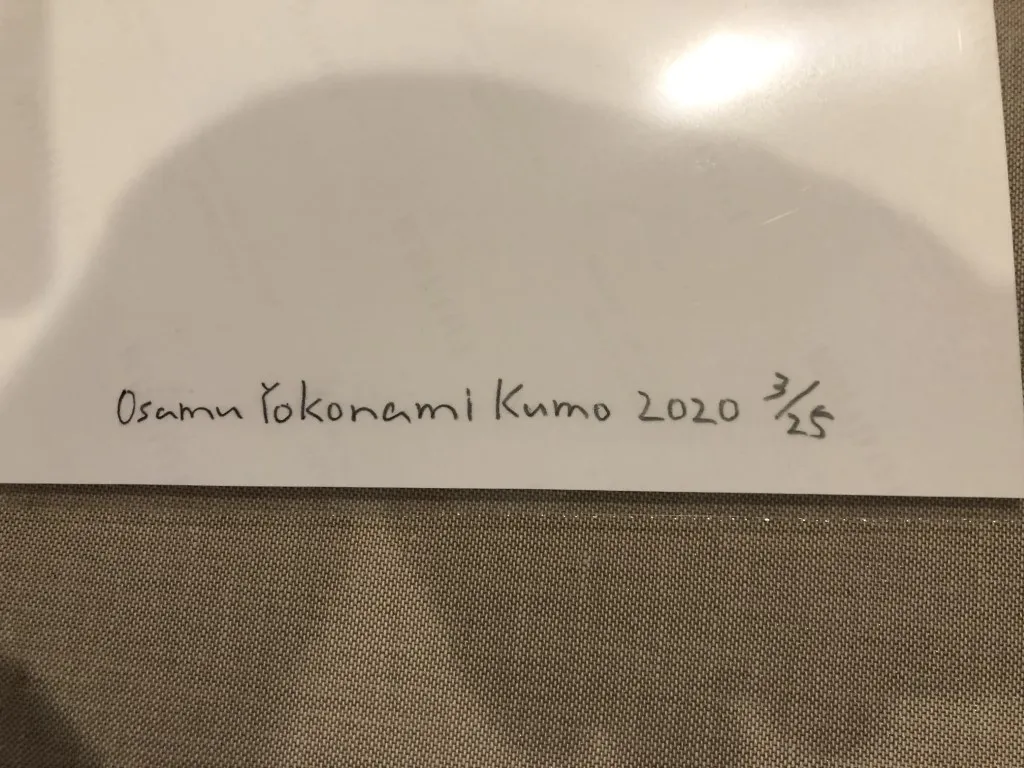 Osamu Yokonami Kumo 2020 3/25